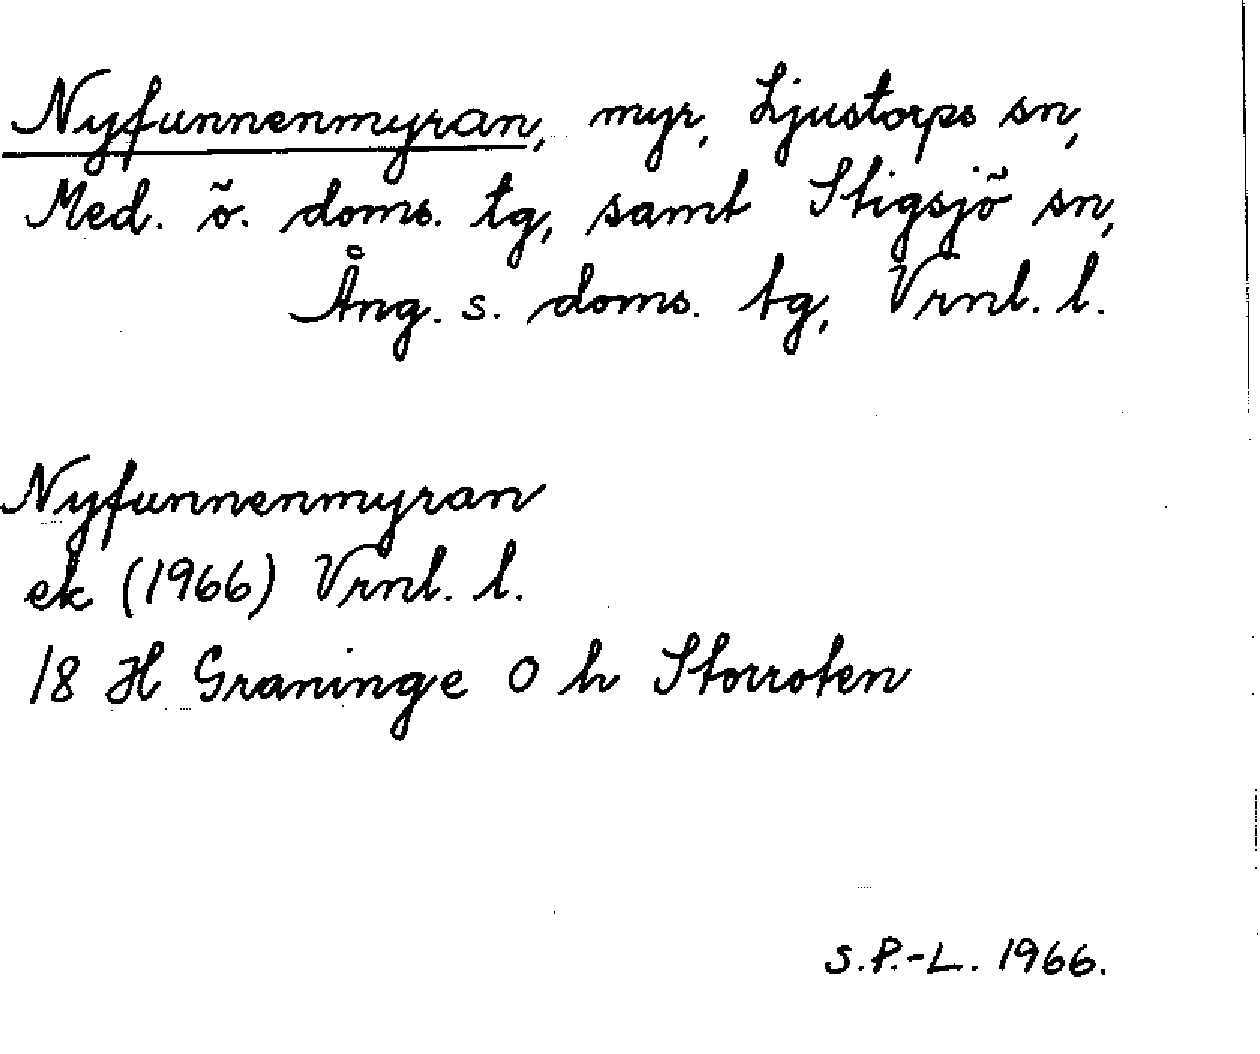 Nyfunnenmyran, myr, Ljustorps sn,
Med. ö. doms. tg, samt Stigsjö sn,
Ång. s. doms. tg, Vrnl. l.
Nyfunnenmyran
ek (1966) Vrnl. l.
18 H Graninge O h Storroten
S.P.-L. 1966.